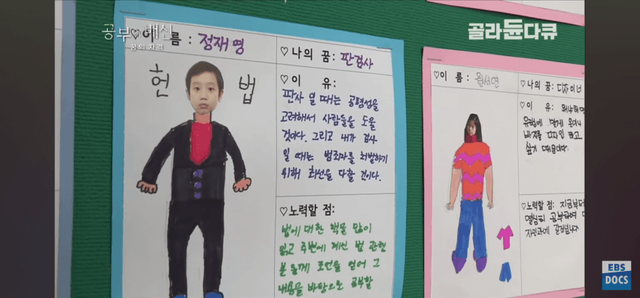 공부의 배신
꿈의 자격
골라듄다큐
♡이 름 : 정재명
♡나의 꿈: 판검사
헌 법
♡이 유:
판사 일 때는 공평성을
고려해서 사람들을 도울
것이다. 그리고 내가 검사
일 때는 범죄자를 처벌하기
위해 최선을 다할 것이다.
♡노력할 점:
법에 대한 책을 많이
읽고 주변에 계신 법 관련
분들께 조언을 얻어 그
내용을 바탕으로 공부할
♡이 름 :
♡나의 꿈: 디자이너
♡이 유:
♡노력할 점: 지금부터
열심히 공부하여
EBS
DOCS